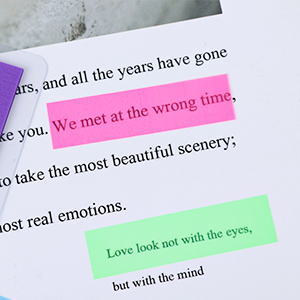 and all the years have gone
you. We met at the wrong time,
to take the most beautiful scenery;
real emotions.
Love look not with the eyes,
but with the mind